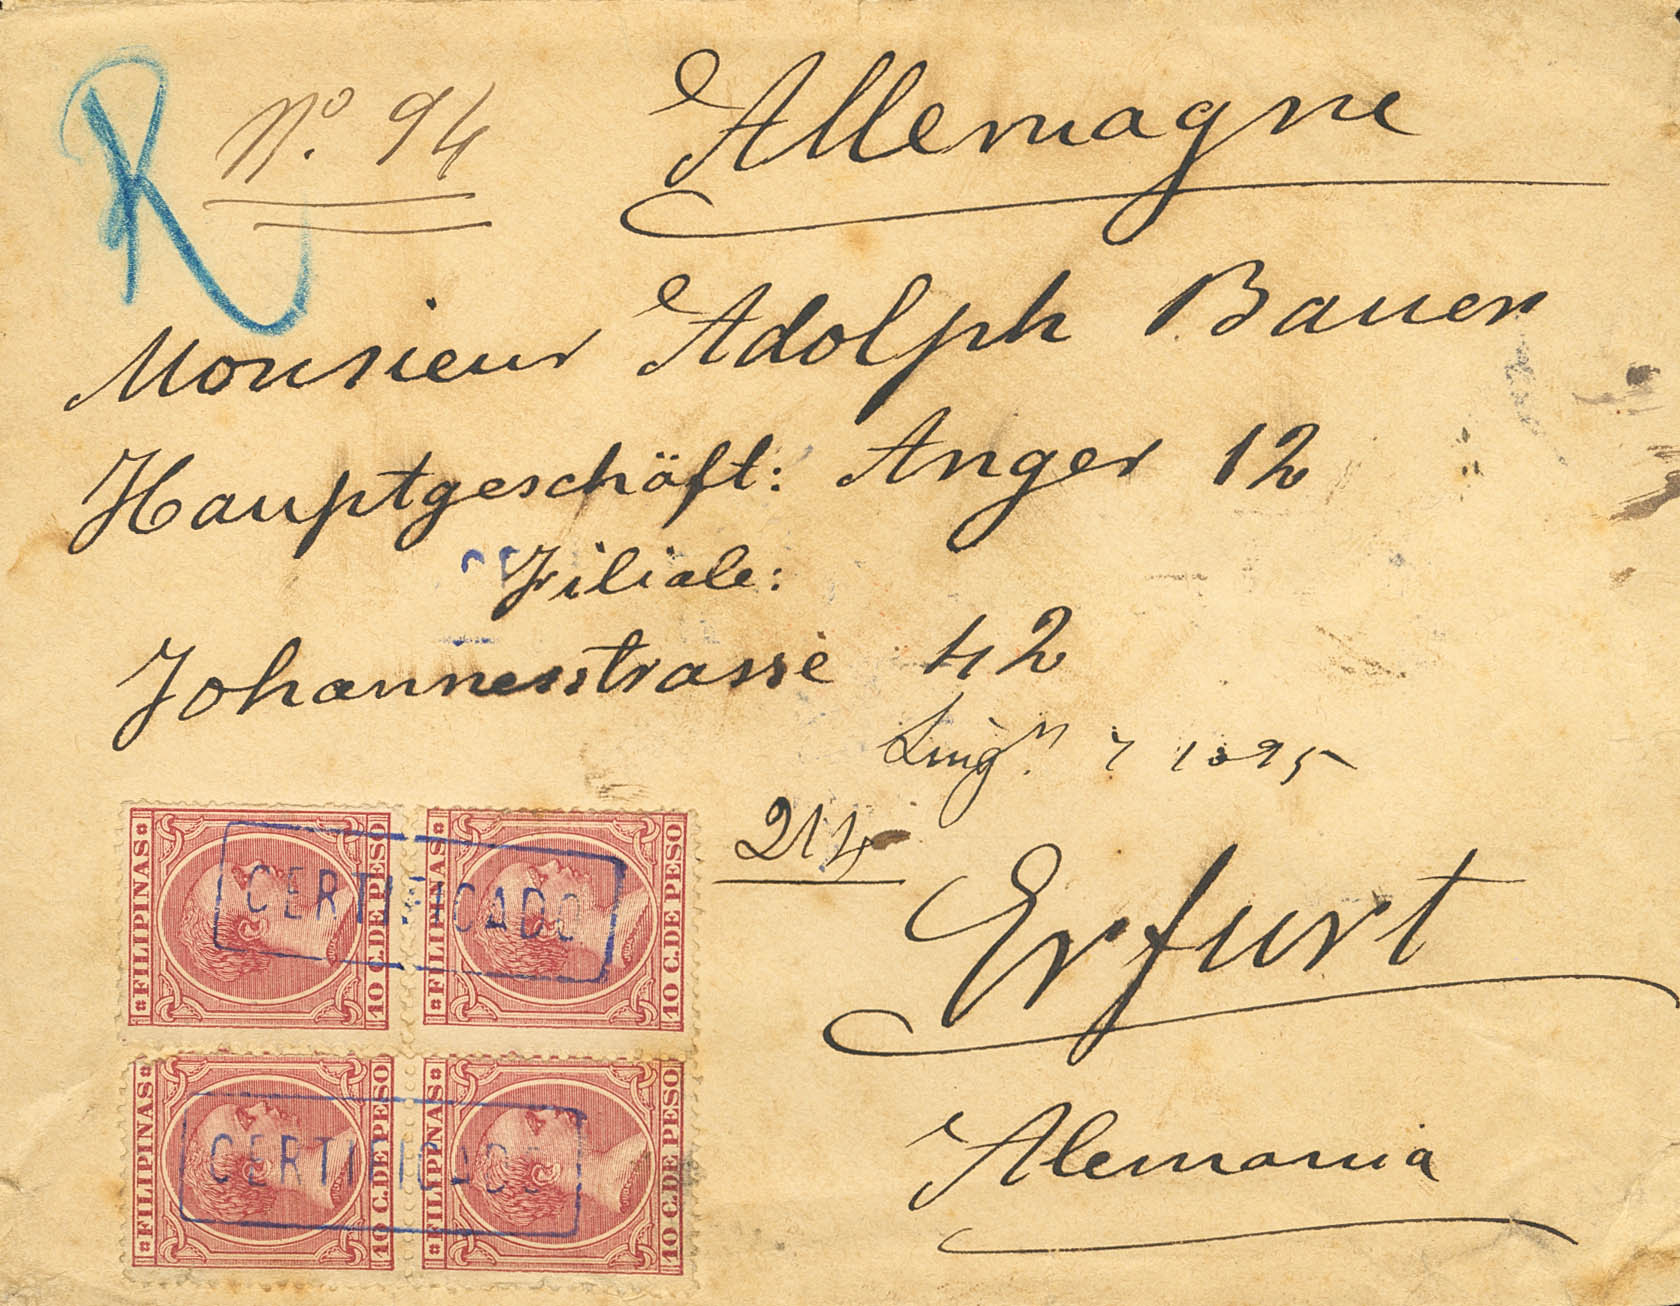 R
No. 94
Allemagne
Monsieur Adolph Bauer
Hauptgeschäft: Anger 12
Filiale:
Johannesstrasse 42
7 1895
214
Erfurt
Alemania
FILIPINAS
10 C. DE PESO
FILIPINAS
10 C. DE PESO
CERTIFICADO
FILIPINAS
10 C. DE PESO
FILIPPNAS
10 C. DE PESO
CERTIFICADO